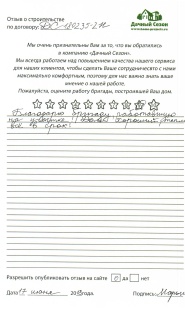 Отзыв о строительстве
по договору: ДС-
Дачный Сезон
Мы очень признательны Вам за то, что вы обратились
в компанию «Дачный Сезон».
Мы всегда работаем над повышением качества нашего сервиса
для наших клиентов, чтобы сделать Ваше сотрудничество с нами
максимально комфортным, поэтому для нас важно знать ваше
мнение о нашей работе.
Пожалуйста, оцените работу бригады, построившей Ваш дом.
Благодарю бригаду работавшую
на
все в срок!
Разрешить опубликовать отзыв на сайте да нет
Дата: 17 июня Подпись: